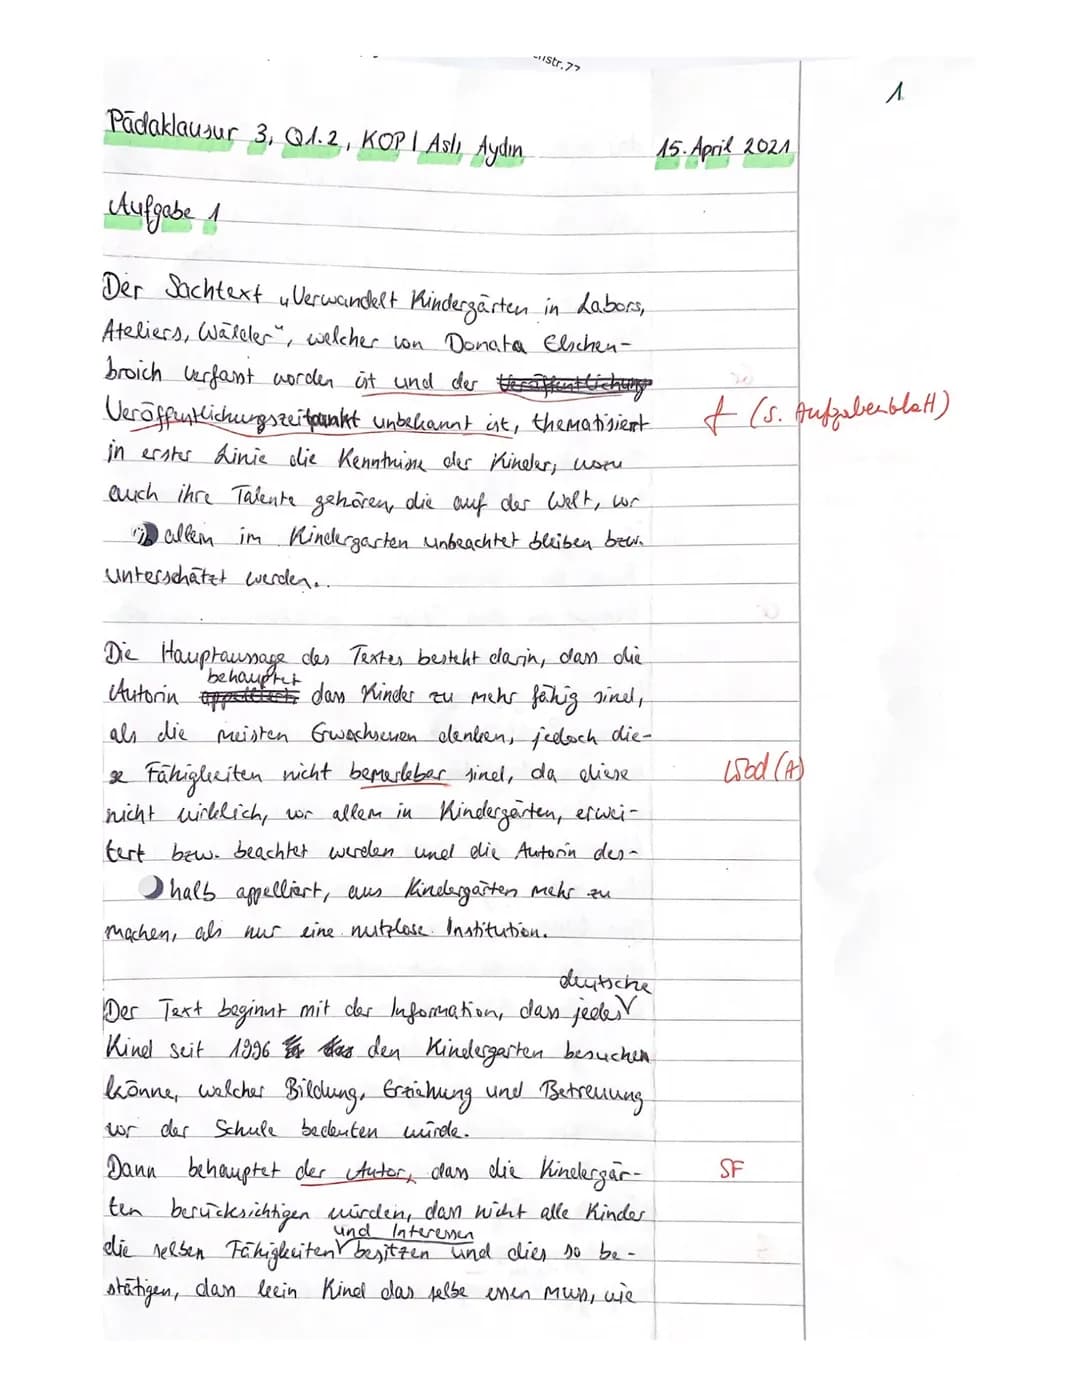 nstr. 77
1
Pädaklausur 3, Q1.2, KOP | Aslı Aydın 15. April 2021
Aufgabe 1
Der Sachtext „Verwandelt Kindergärten in Labors,
Ateliers, Wälder“, welcher von Donata Elschen-
broich verfasst worden ist und der Veröffentlichung
Veröffentlichungszeitpunkt unbekannt ist, thematisiert f (s. Aufgabenblatt)
in erster Linie die Kenntnisse der Kinder, wozu
auch ihre Talente gehören, die auf der Welt, vor
allem im Kindergarten unbeachtet bleiben bzw.
unterschätzt werden.
Die Hauptaussage des Textes besteht darin, dass die
behauptet
Autorin dass Kinder zu mehr fähig sind,
als die meisten Erwachsenen denken, jedoch die-
se Fähigkeiten nicht bemerkbar sind, da diese (A)
nicht wirklich, vor allem in Kindergärten, erwei-
tert bzw. beachtet werden und die Autorin des-
halb appelliert, aus Kindergärten mehr zu
machen, als nur eine nutzlose Institution.
deutsche
Der Text beginnt mit der Information, dass jedes
Kind seit 1996 den Kindergarten besuchen
könne, welcher Bildung, Erziehung und Betreuung
vor der Schule bedeuten würde.
Dann behauptet der Autor, dass die Kindergär- SF
ten berücksichtigen würden, dass nicht alle Kinder
und Interessen
die selben Fähigkeiten besitzen und dies so be-
stätigen, dass kein Kind das selbe essen muss, wie